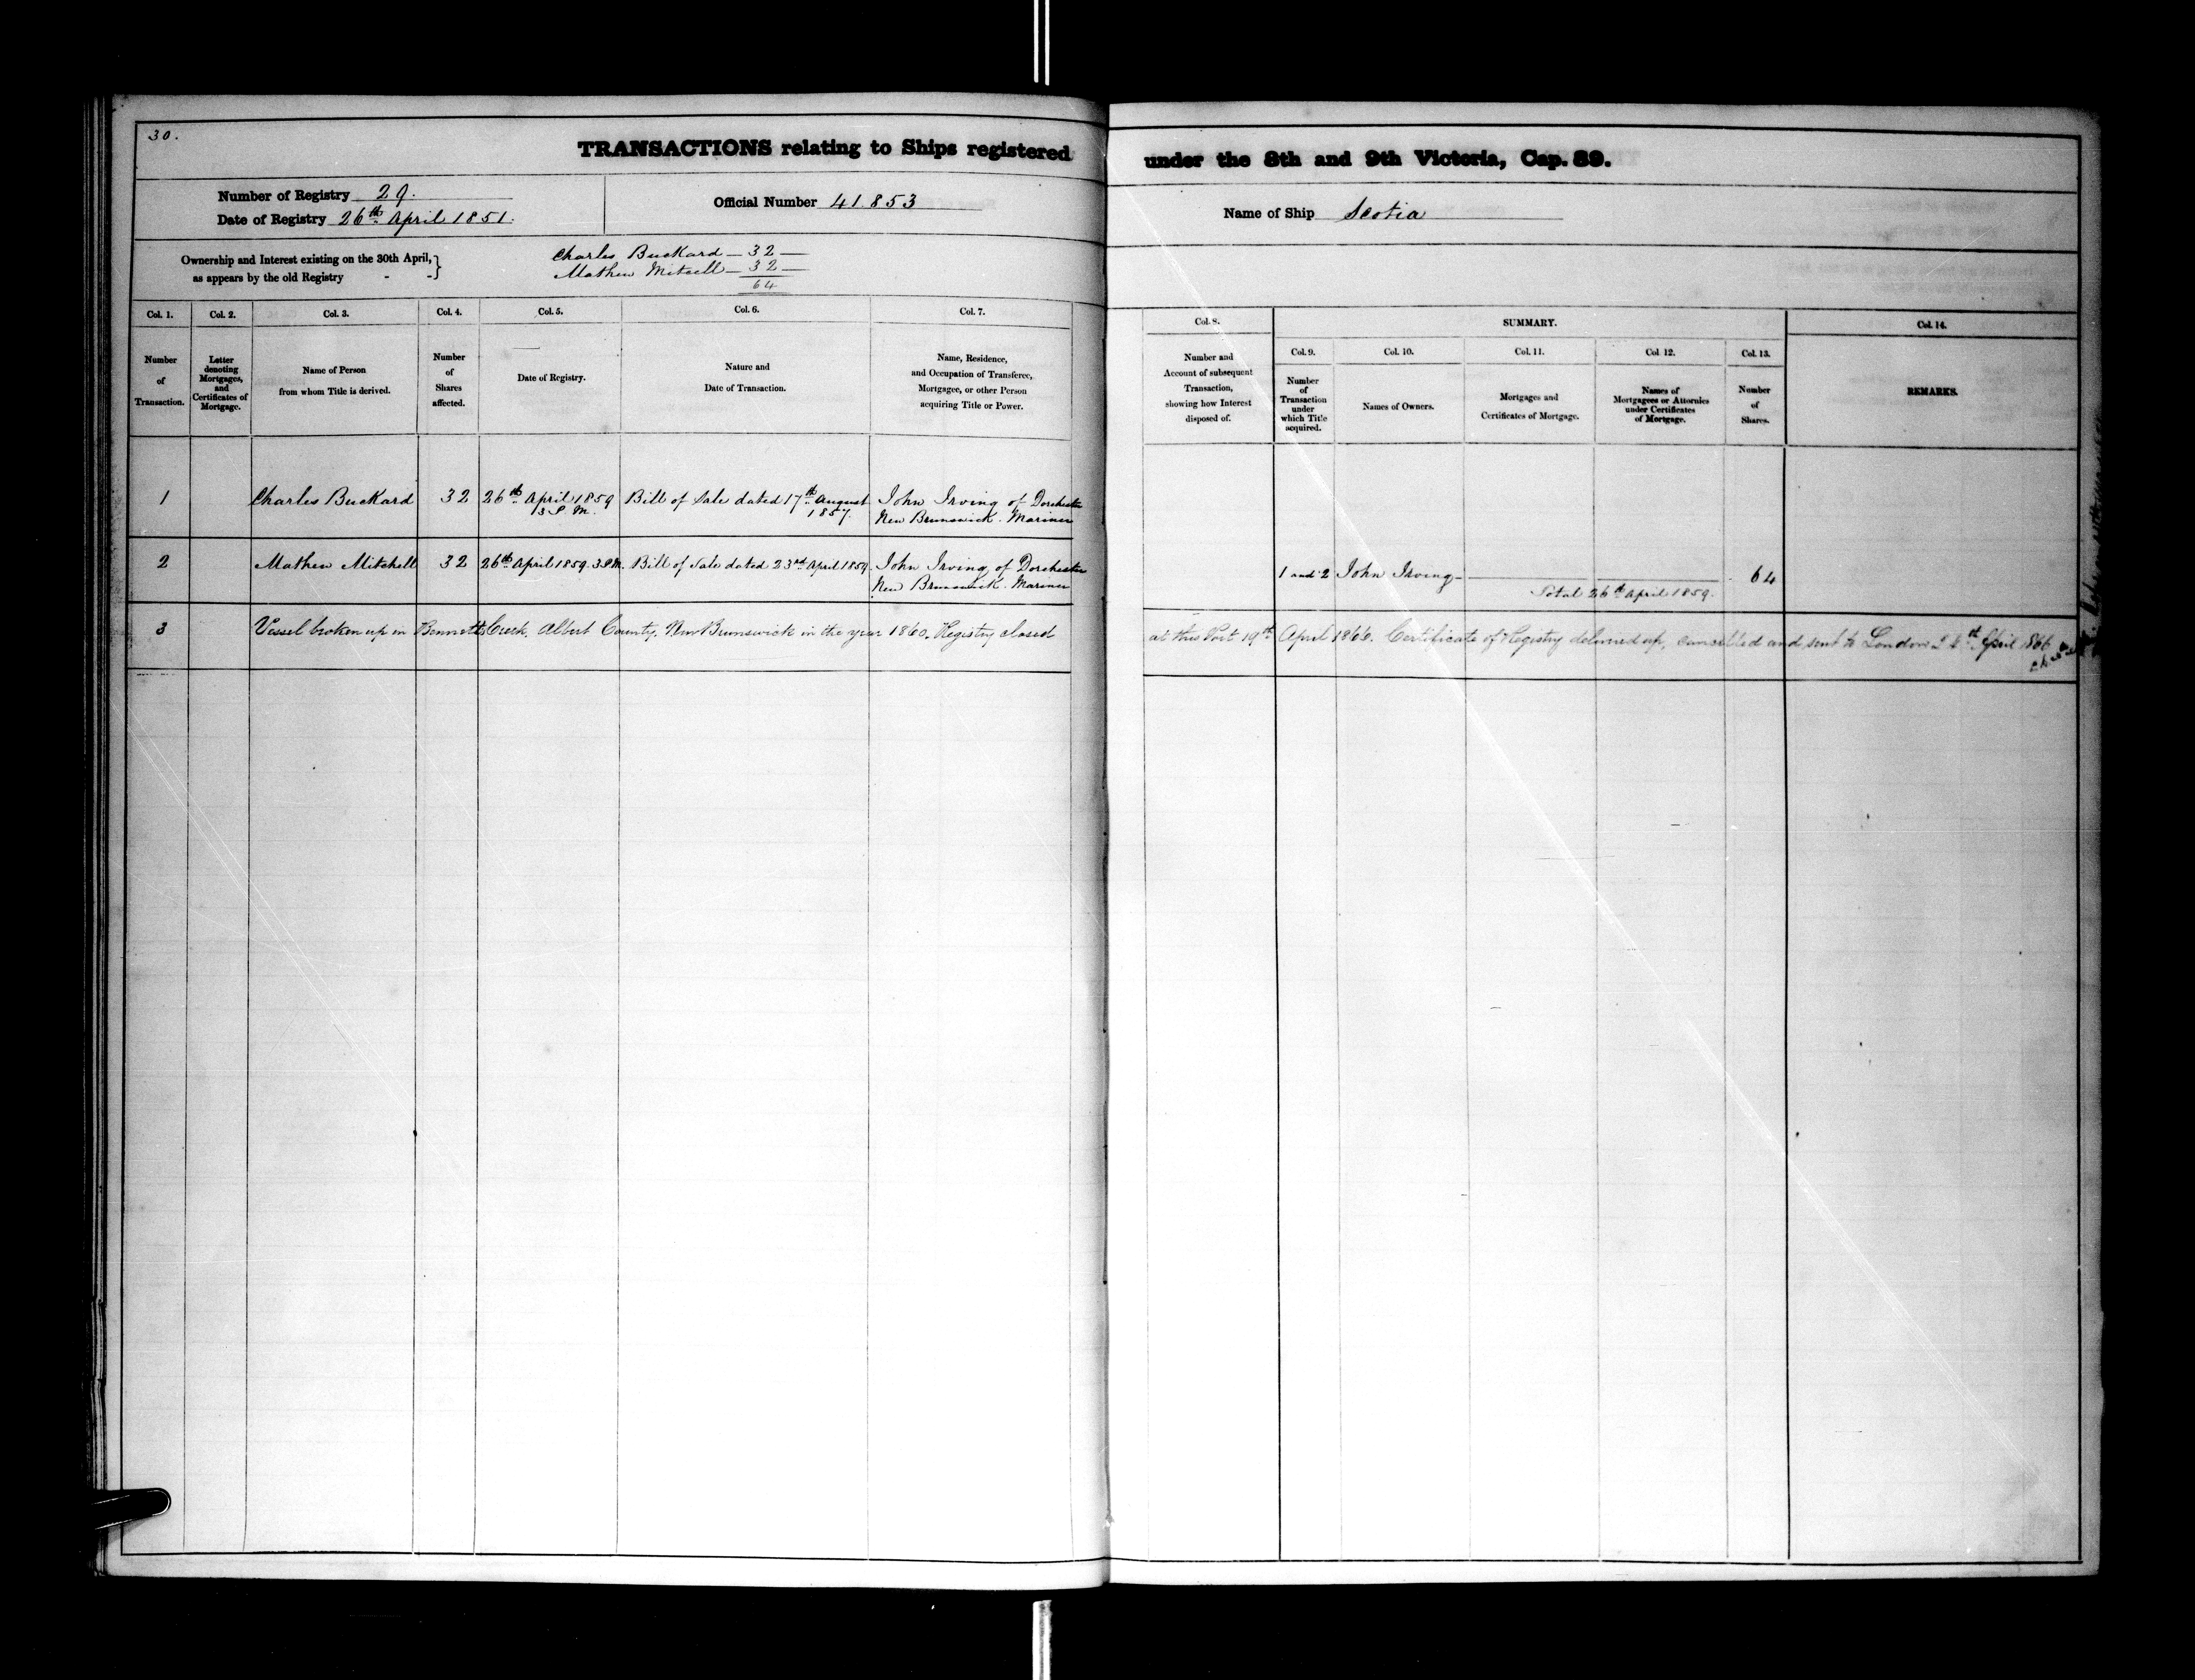 30.
TRANSACTIONS relating to Ships registered under the 8th and 9th Victoria, Cap. 89.
Number of Registry 29.
Date of Registry 26th April 1851.
Official Number 41.853
Name of Ship Scotia
Ownership and Interest existing on the 30th April,
as appears by the old Registry - -}
Charles Buckard — 32 —
Mathew Mitchell — 32 —
64
Col. 1.
Number
of
Transaction.
Col. 2.
Letter
denoting
Mortgages,
and
Certificates of
Mortgage.
Col. 3.
Name of Person
from whom Title is derived.
Col. 4.
Number
of
Shares
affected.
Col. 5.
Date of Registry.
Col. 6.
Nature and
Date of Transaction.
Col. 7.
Name, Residence,
and Occupation of Transferee,
Mortgagee, or other Person
acquiring Title or Power.
Col. 8.
Number and
Account of subsequent
Transaction,
showing how Interest
disposed of.
SUMMARY.
Col. 9.
Number
of
Transaction
under
which Title
acquired.
Col. 10.
Names of Owners.
Col. 11.
Mortgages and
Certificates of Mortgage.
Col. 12.
Names of
Mortgagees or Attornies
under Certificates
of Mortgage.
Col. 13.
Number
of
Shares.
Col. 14.
REMARKS.
1 Charles Buckard 32 26th April 1859 Bill of Sale dated 17th August John Irving of Dorchester
3 P.M. 1857. New Brunswick. Mariner
2 Mathew Mitchell 32 26th April 1859. 3 P.M. Bill of Sale dated 23rd April 1859. John Irving of Dorchester
New Brunswick. Mariner
1 and 2 John Irving — 64
Total 26th April 1859.
3 Vessel broken up in Bennetts Creek, Albert County, New Brunswick in the year 1860. Registry closed at this Port 19th April 1866. Certificate of Registry delivered up, cancelled and sent to London 24th April 1866